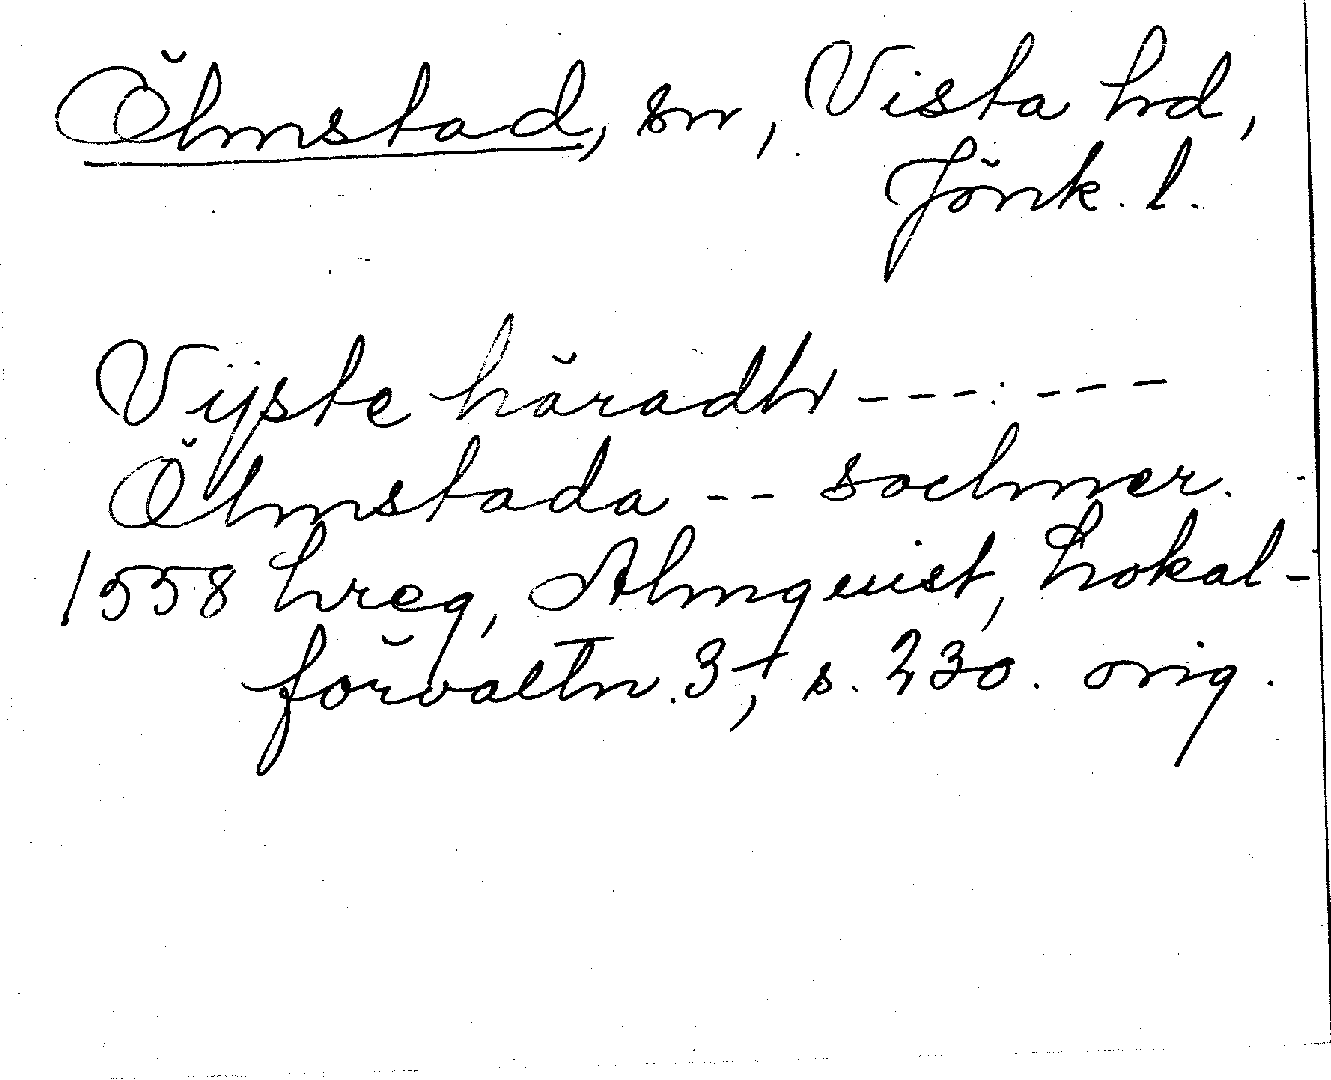 Ölmstad, sn, Vista hd,
Jönk. l.
Vijste häradh --- ---
Ölmstada -- sochner.
1558 hreg, Almquist, Lokal-
förvaltn. 3, s. 230. orig.